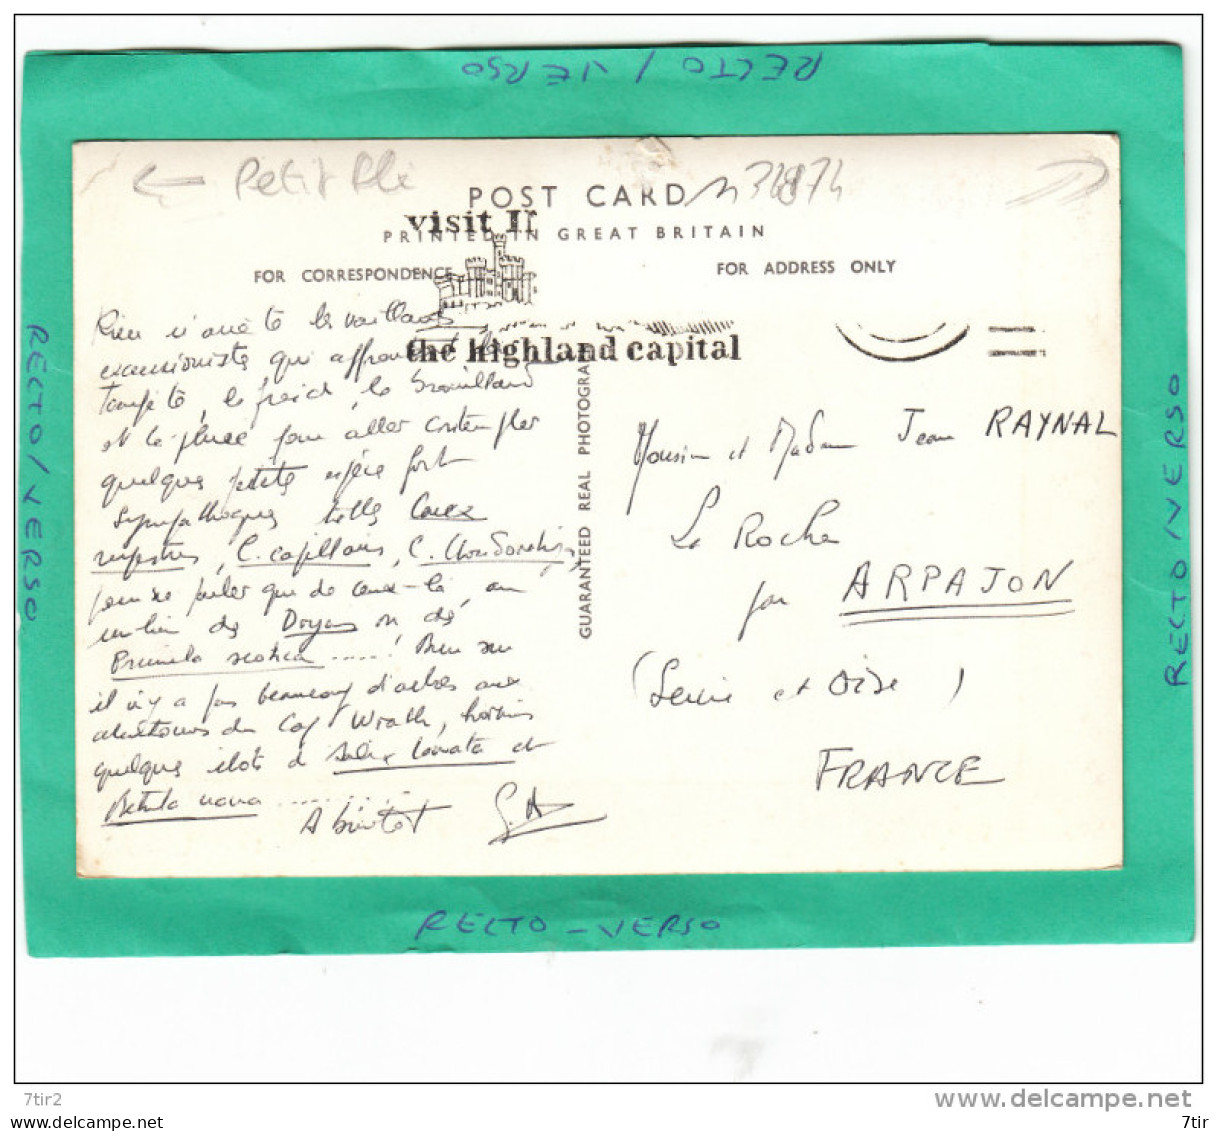 RECTO / VERSO
← Petit Pli
POST CARD
visit I
PRINTED IN GREAT BRITAIN
FOR CORRESPONDENCE
FOR ADDRESS ONLY
the highland capital
Rien n'arrête les vaillants
excursionistes qui affrontent la
tempête, le froid, le brouillard
et la pluie pour aller contempler
quelques petites espèces fort
sympathiques telles Carex
rupestris, C. capillaris, C. Chordorrhiza,
pour ne parler que de ceux-là, au
milieu des Dryas et des
Primula scotica .....! Bien sûr
il n'y a pas beaucoup d'arbres aux
alentours du Cap Wrath, hormis
quelques îlots de Salix lanata et
Betula nana ..........
A bientôt
GUARANTEED REAL PHOTOGRA
Monsieur et Madame Jean RAYNAL
La Roche
par ARPAJON
(Seine et Oise)
FRANCE
RECTO / VERSO
RECTO / VERSO
RECTO - VERSO
7tir2
delcampe.net
www.delcampe.net
7tir